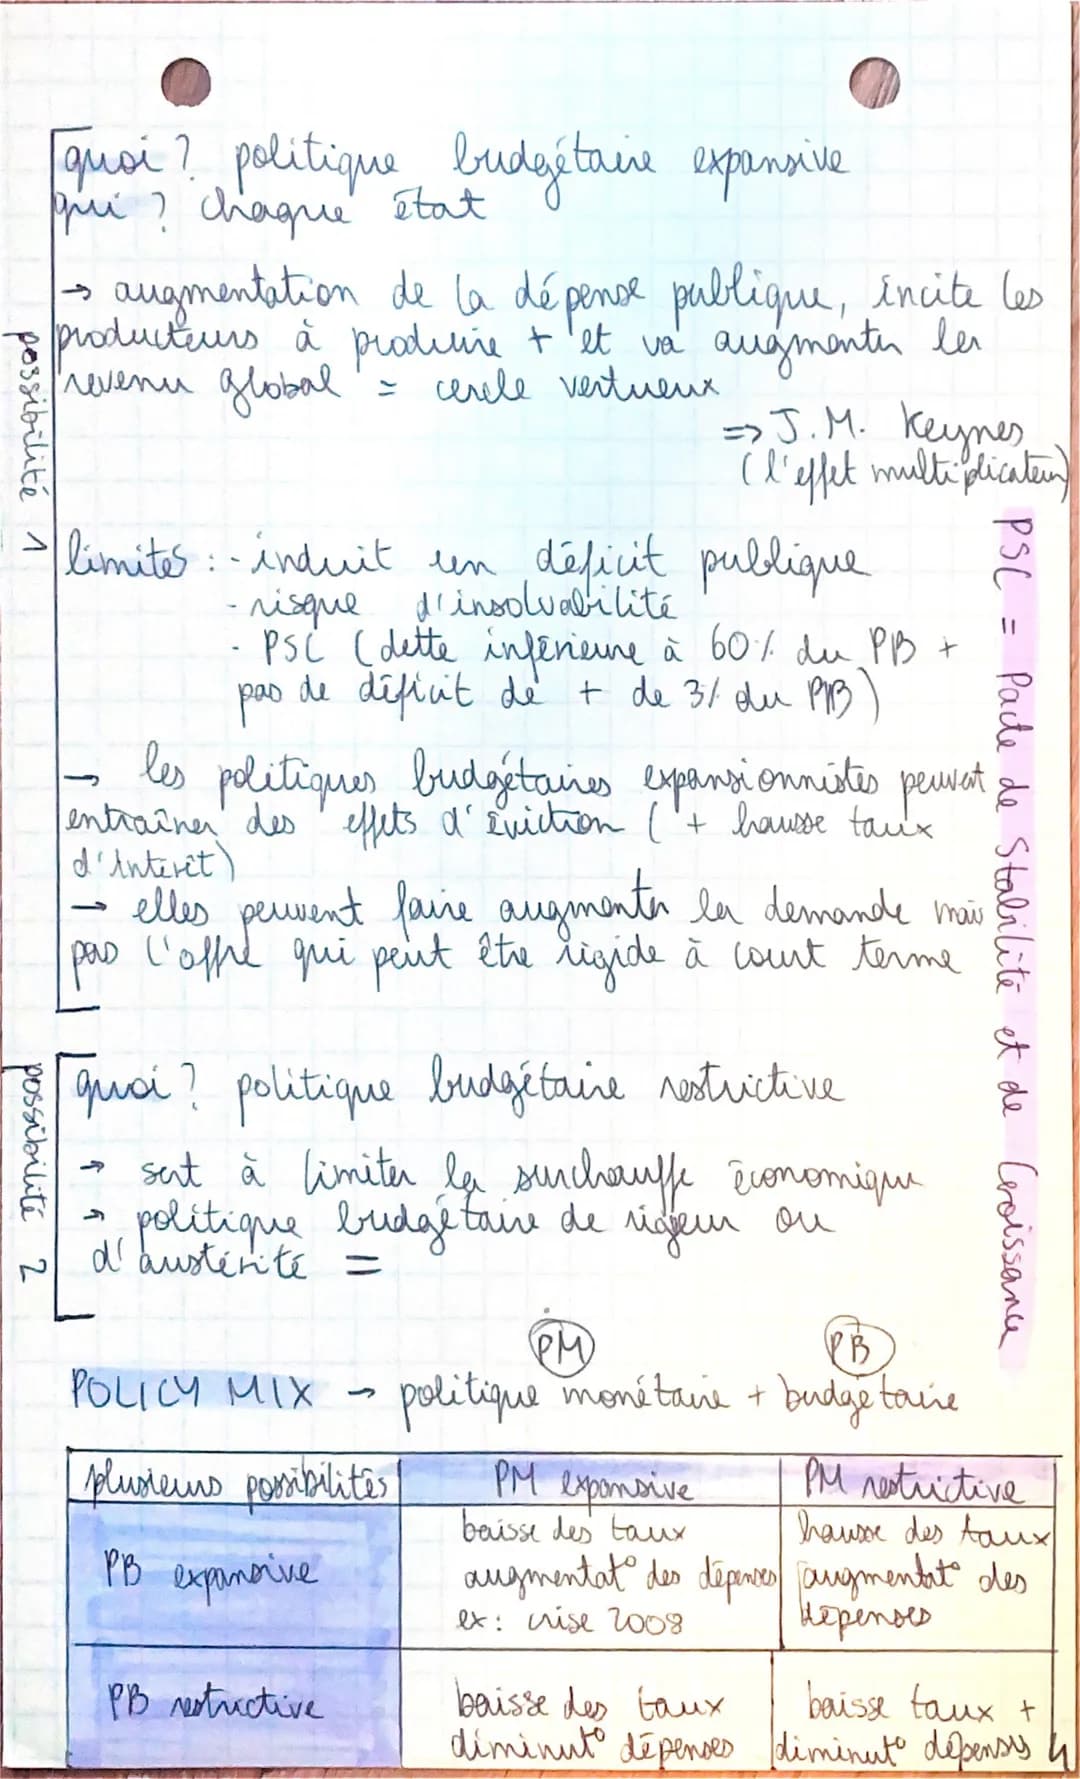 quoi ? politique budgétaire expansive
qui ? chaque état
→ augmentation de la dépense publique, incite les
producteurs à produire + et va augmenter le
revenu global = cercle vertueux
=> J.M. Keynes
(l'effet multiplicateur)
possibilité 1
limites : - induit un déficit publique
- risque d'insolvabilité
- PSC (dette inférieure à 60% du PIB +
pas de déficit de + de 3% du PIB)
→ les politiques budgétaires expansionnistes peuvent
entraîner des effets d'éviction ( + hausse taux
d'interêt)
→ elles peuvent faire augmenter la demande mais
pas l'offre qui peut être rigide à court terme
PSC = Pacte de Stabilité et de Croissance
possibilité 2
quoi ? politique budgétaire restrictive
→ sert à limiter la surchauffe économique
→ politique budgétaire de rigeur ou
d'austérité =
PM PB
POLICY MIX → politique monétaire + budgetaire
plusieurs possibilités PM expansive PM restrictive
PB expansive
baisse des taux
augmentat° des dépenses
ex : crise 2008
hausse des taux
augmentat° des
dépenses
PB restrictive
baisse des taux
diminut° dépenses
baisse taux +
diminut° dépenses
4